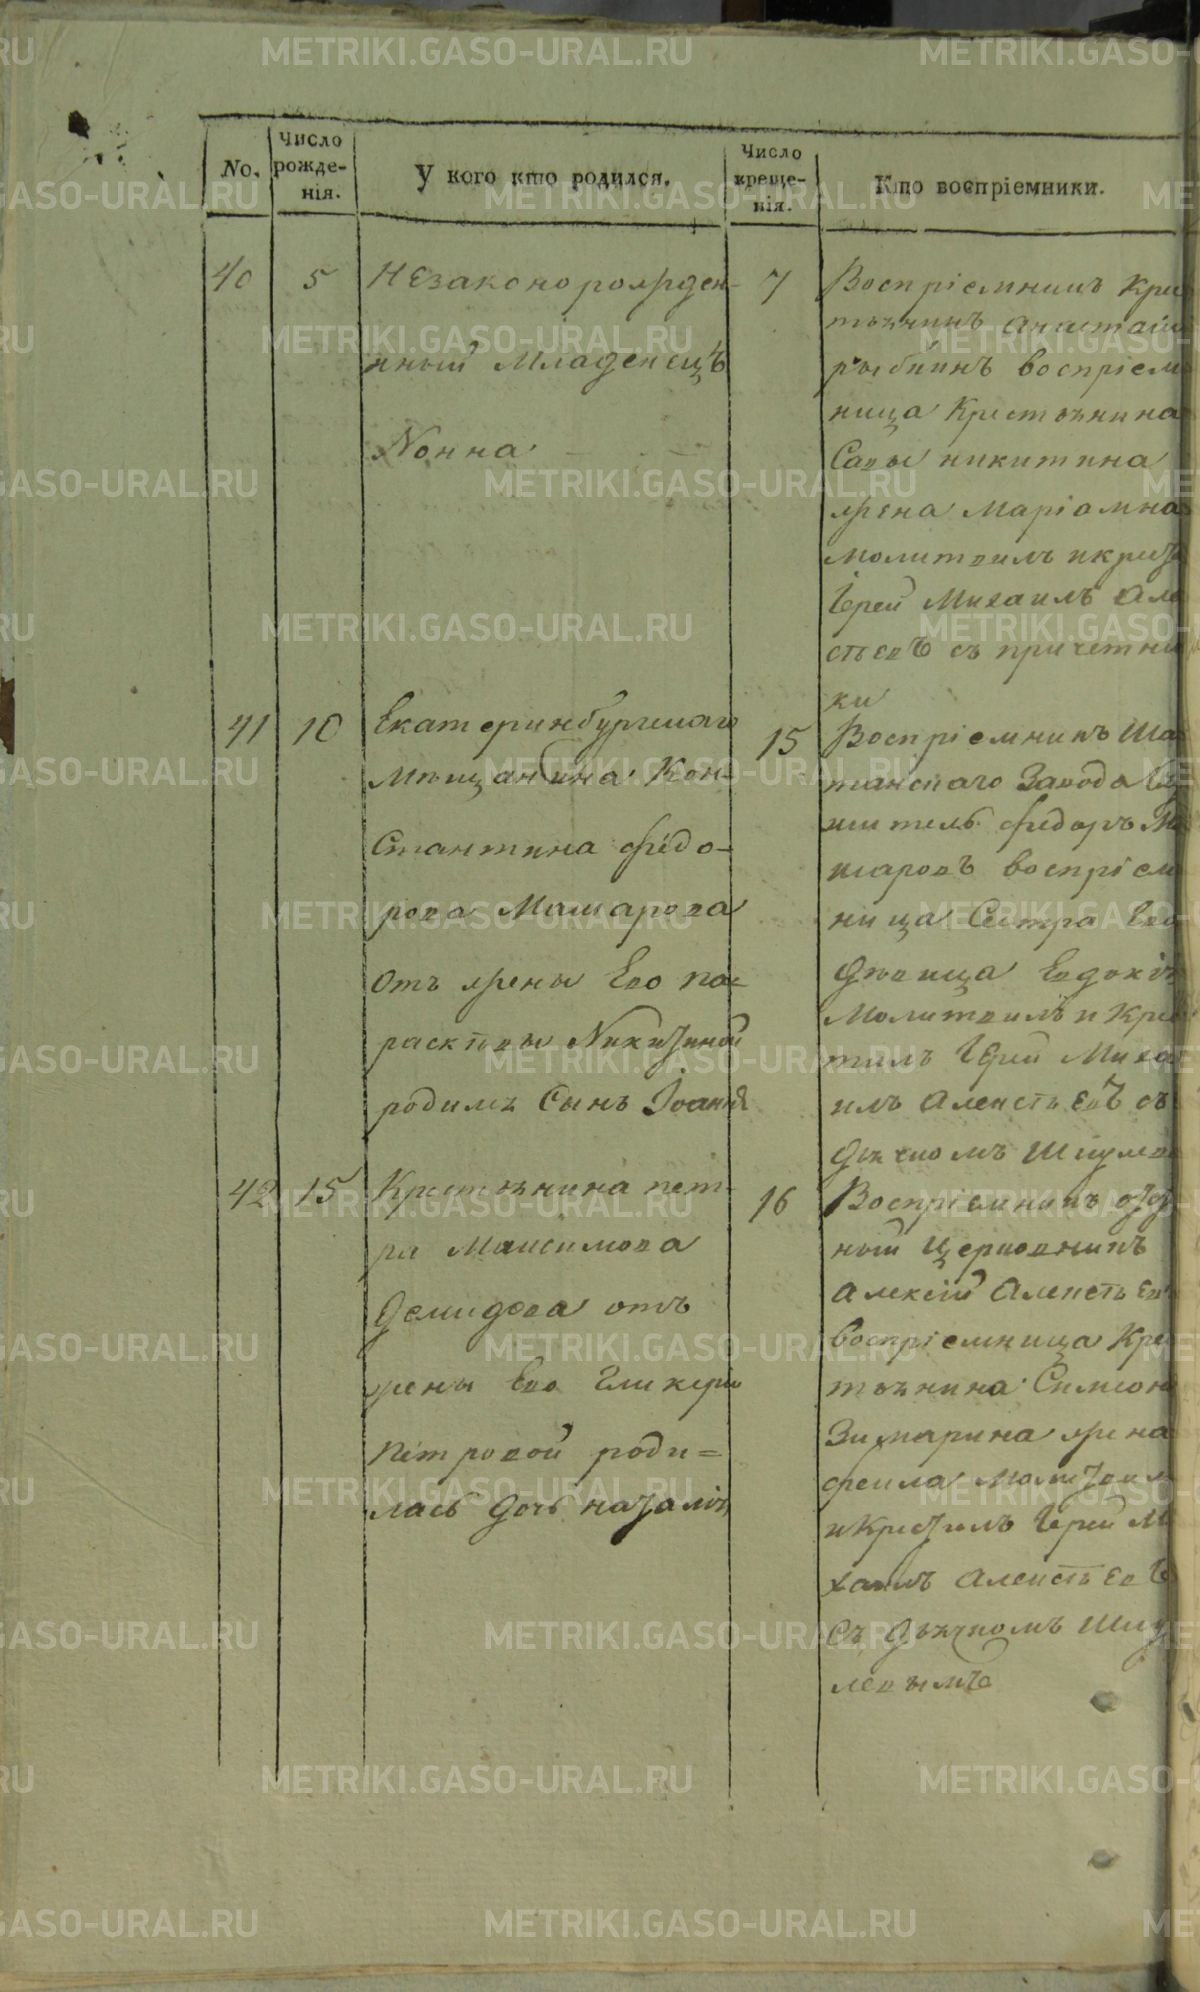 No.
Число рожде-нія.
У кого кто родился.
Число креще-нія.
Кто воспріемники.
40
5
Незаконорожден-
нный Младенецъ
Нонна
7
Воспріемникъ Крес
тьянинъ Анастасій
рыбинъ воспріем
ница Крестьянина
Савы никитина
жена Маріамна
молитвилъ икрест
Іерей Михаилъ Але
стьевъ съ причетни
ки
41
10
Екатеринбургскаго
Мѣщанина Кон-
Стантина Федо-
рова Машарова
Отъ жены Его па=
раскѣвы Никитиной
родилъ Сынъ Іоаннъ
15
Воспріемникъ Ша
танскаго Завода
житель федоръ Ма
шаровъ воспріем
ница Сестра Его
Дѣвица Евдокія
Молитвилъ и Крес
тилъ Іерей Миха
илъ Алексѣевъ съ
Дьячкомъ
42
15
Крестьянина пет-
ра Максимова
Демидова отъ
жены Его Гликеріи
Петровой роди=
лась Дочь наталія
16
Воспріемникъ
ный Церковникъ
Алексій Алексѣевъ
воспріемница Кре
тьянина Симеона
жена
фекла Молитвил
и Крестилъ Іерей Ми
хаилъ Алексѣевъ
Съ Дьячкомъ
левымъ
METRIKI.GASO-URAL.RU